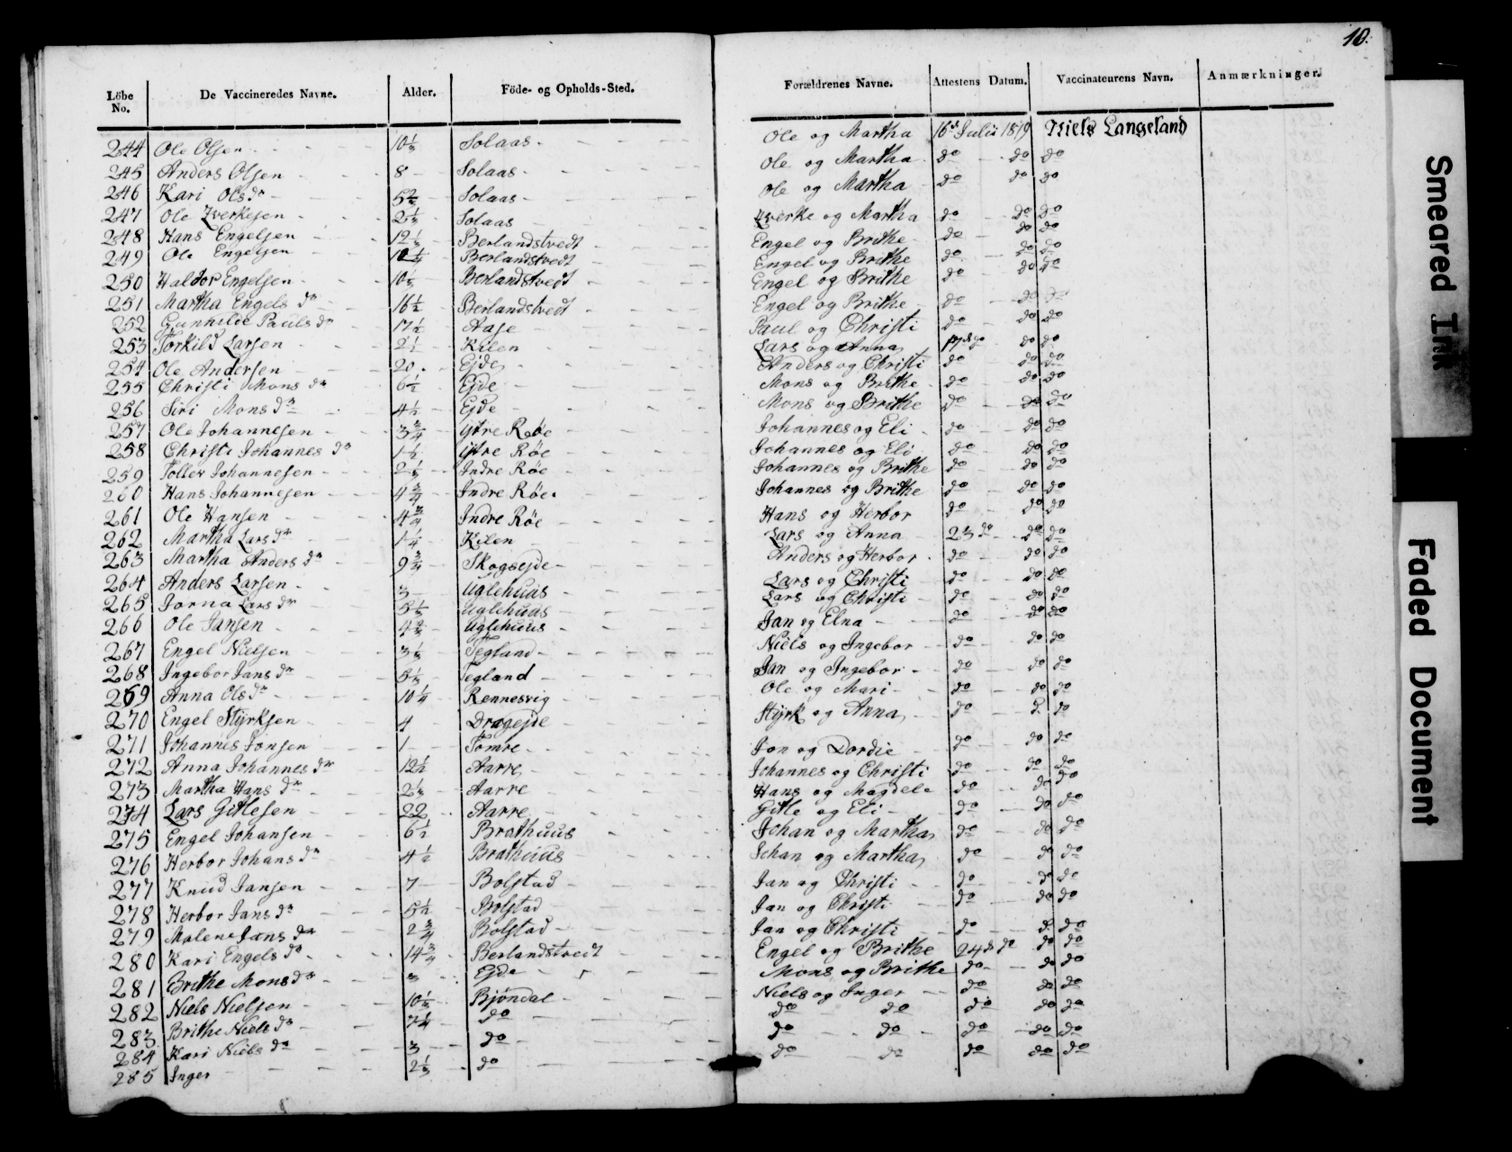 10.
Löbe No. De Vaccineredes Navne. Alder. Föde- og Opholds-Sted. Forældrenes Navne. Attestens Datum. Vaccinateurens Navn. Anmærkninger.
244 Ole Olsen 10 1/3 Solaas Ole og Martha 16d Julii 1819 Niels Langeland
245 Anders Olsen 8 Solaas Ole og Martha do do do
246 Kari Olsdr Solaas Ole og Martha do do do
247 Ole Zverkesen 2 1/3 Solaas Zverke og Martha do do do
248 Hans Engelsen 12 1/3 Berlandstvedt Engel og Brithe do do do
249 Ole Engelsen Berlandstvedt Engel og Brithe do do do
250 Haldor Engelsen 10 1/3 Berlandstvedt Engel og Brithe do do do
251 Martha Engelsdr 16 1/2 Berlandstvedt Engel og Brithe do do do
252 Gunhilde Paulsdr 17 1/2 Aase Paul og Christi do do do
253 Torkild Larsen 2 1/2 Kilen Lars og Anna 17de do do do
254 Ole Andersen 20 Ejde Anders og Christi do do do
255 Christi Monsdr 6 1/2 Ejde Mons og Brithe do do do
256 Siri Monsdr 4 1/2 Ejde Mons og Brithe do do do
257 Ole Johannesen 3 3/4 ytre Røe Johannes og Eli do do do
258 Christi Johannesdr 1 1/2 ytre Røe Johannes og Eli do do do
259 Tollev Johannesen 2 1/3 Indre Røe Johannes og Brithe do do do
260 Hans Johannesen 4 3/4 Indre Røe Johannes og Brithe do do do
261 Ole Hansen 4 3/4 Indre Røe Hans og Herbor do do do
262 Martha Larsdr 1 1/4 Kilen Lars og Anna 23 do do do
263 Martha Andersdr 9 3/4 Skogsejde Anders og Herbor do do do
264 Anders Larsen 3 Uglehuus Lars og Christi do do do
265 Jorna Larsdr 5 1/2 Uglehuus Lars og Christi do do do
266 Ole Jansen 4 2/3 Uglehuus Jan og Elna do do do
267 Engel Nielsen 3 1/2 Tegland Niels og Ingebor do do do
268 Ingebor Jansdr 5 1/3 Tegland Jan og Ingebor do do do
269 Anna Olsdr 10 1/4 Rennesvig Ole og Mari do do do
270 Engel Styrksen 4 Dragejde Styrk og Anna do do do
271 Johannes Jonsen 1 Tomre Jon og Dordie do do do
272 Anna Johannesdr 12 1/2 Aarre Johannes og Christi do do do
273 Martha Hansdr 2 1/3 Aarre Hans og Magdele do do do
274 Lars Gitlesen 22 Aarre Gitle og Eli do do do
275 Engel Johansen 6 1/2 Brathuus Johan og Martha do do do
276 Herbor Johansdr 4 1/2 Brathuus Johan og Martha do do do
277 Knud Jansen 7 Bolstad Jan og Christi do do do
278 Herbor Jansdr 5 1/2 Bolstad Jan og Christi do do do
279 Malene Jansdr 2 3/4 Bolstad Jan og Christi do do do
280 Kari Engelsdr 14 3/4 Berlandstvedt Engel og Brithe 24d do do do
281 Brithe Monsdr 3 Ejde Mons og Brithe do do do
282 Niels Nielsen 10 1/3 Bjöndal Niels og Inger do do do
283 Brithe Nielsdr 7 1/4 do do do do do do
284 Kari Nielsdr 3 do do do do do do
285 Inger 2 1/3 do do do do do do
Smeared Ink
Faded Document